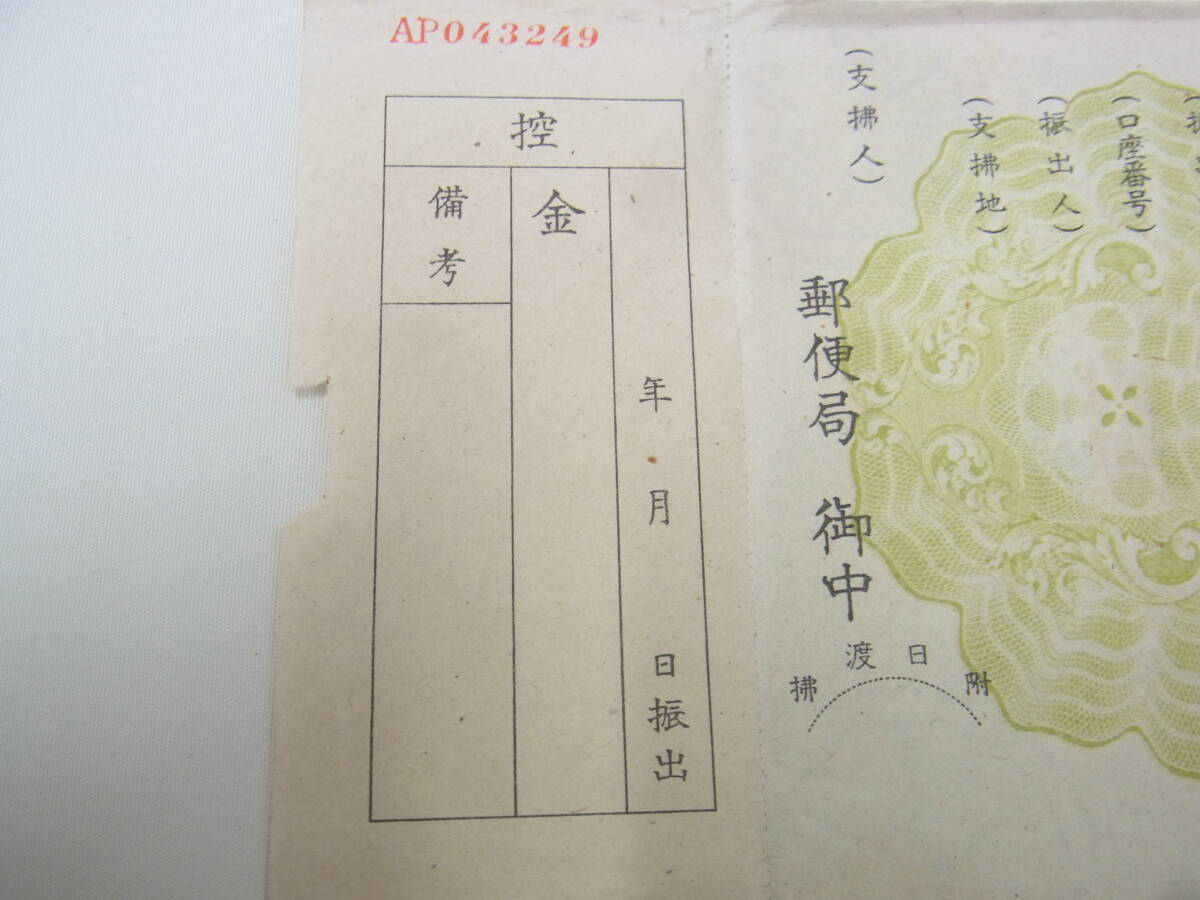 AP043249
控
年 月 日振出
金
備考
(口座番号)
(振出人)
(支拂地)
(支拂人)
郵便局 御中
拂渡日附